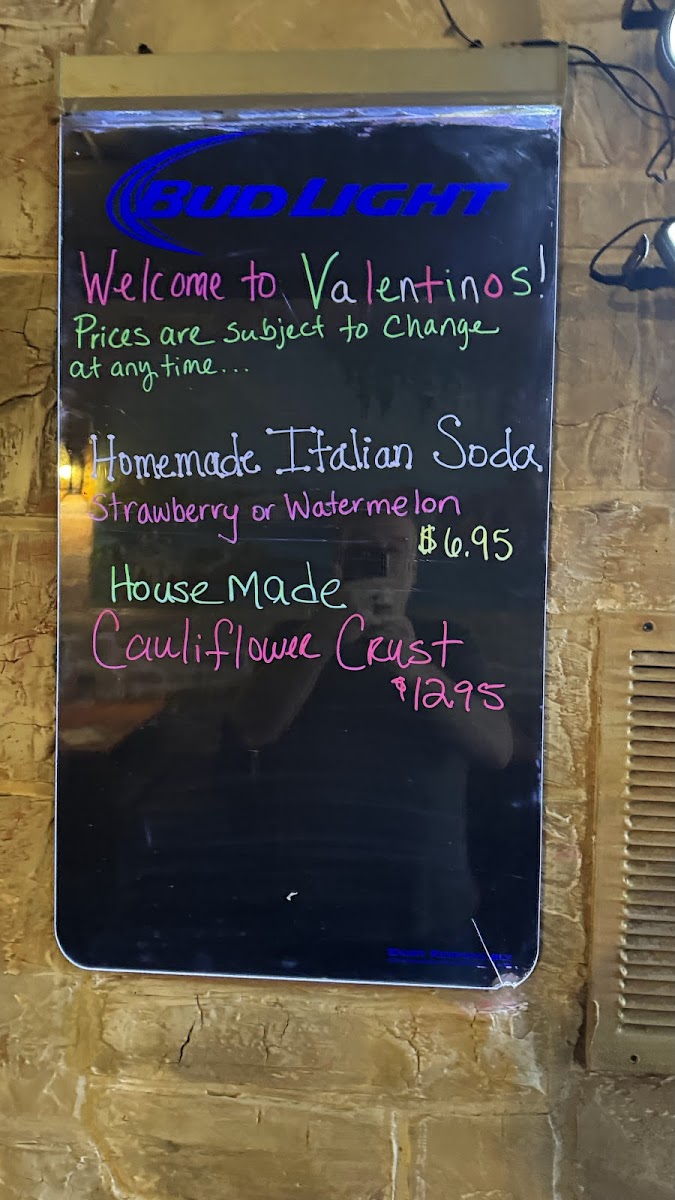 BUD LIGHT
Welcome to Valentinos!
Prices are subject to change
at any time...
Homemade Italian Soda
Strawberry or Watermelon
$6.95
House Made
Cauliflower Crust
$1295